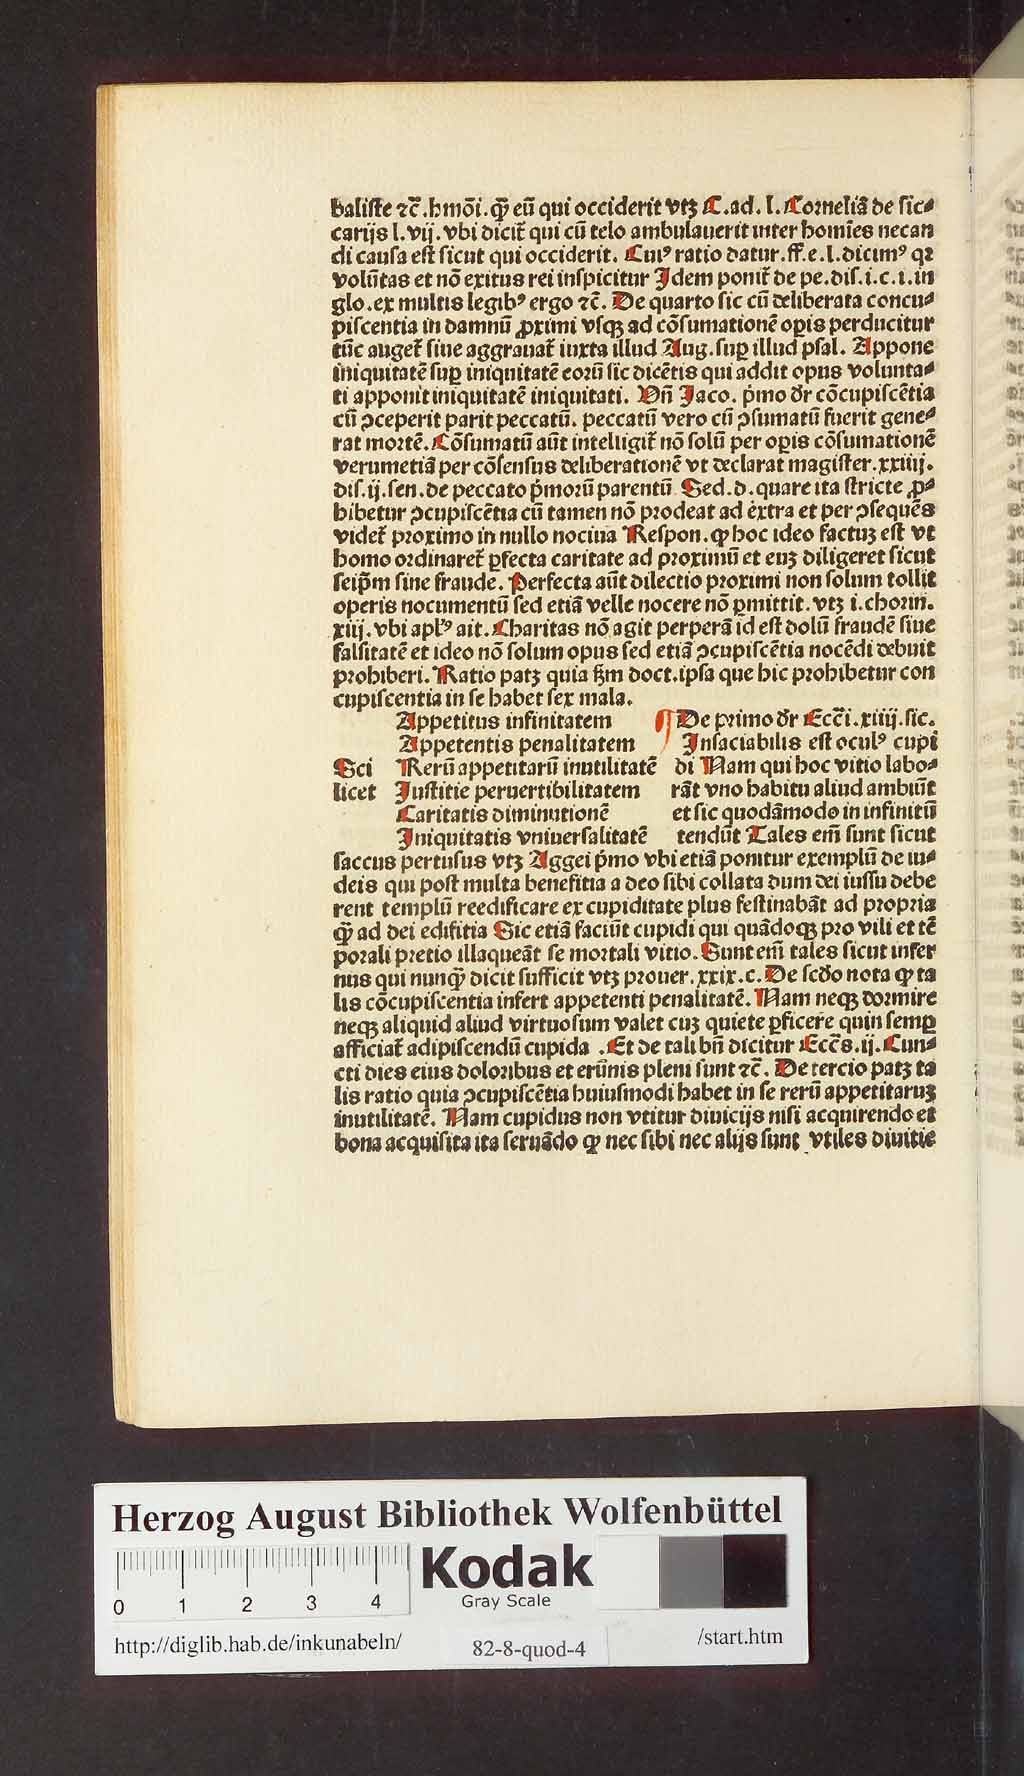 baliste ⁊c̄.hmōi.q̄ꝫ eū qui occiderit vtꝫ C.ad.l.Corneliā de sic⸗
carijs l.vij.vbi dicit᷑ qui cū telo ambulauerit inter homīes necan
di causa est sicut qui occiderit. Cuiꝰ ratio datur.ff.e.l.dicimꝰ qꝛ
volūtas et nō exitus rei inspicitur Jdem ponit᷑ de pe.dis.i.c.i.in
glo.ex multis legibꝰ ergo ⁊c̄. De quarto sic cū deliberata concu⸗
piscentia in damnū ꝓximi vsqꝫ ad cōsumationē oꝑis perducitur
tūc auget᷑ siue aggrauat᷑ iuxta illud Aug.suꝑ illud psal. Appone
iniquitatē suꝑ iniquitatē eorū sic dicētis qui addit opus volunta⸗
ti apponit iniquitatē iniquitati. Vn̄ Jaco. pͥmo dr̄ cōcupiscētia
cū ꝯceperit parit peccatū. peccatū vero cū ꝯsumatū fuerit gene⸗
rat mortē. Cōsumatū aūt intelligit᷑ nō solū per oꝑis cōsumationē
verumetiā per cōsensus deliberationē vt declarat magister.xxiiij.
dis.ij.sen.de peccato pͥmorū parentū Sed.d.quare ita stricte ꝓ⸗
hibetur ꝯcupiscētia cū tamen nō prodeat ad extra et per ꝯsequēs
videt᷑ proximo in nullo nociua Respon.ꝙ hoc ideo factuꝫ est vt
homo ordinaret᷑ ꝑfecta caritate ad proximū et euꝫ diligeret sicut
seip̄m sine fraude. Perfecta aūt dilectio proximi non solum tollit
operis nocumentū sed etiā velle nocere nō ꝑmittit.vtꝫ i.chorin.
xiij.vbi apl̄ꝰ ait.Charitas nō agit perperā id est dolū fraudē siue
falsitatē et ideo nō solum opus sed etiā ꝯcupiscētia nocēdi debuit
prohiberi. Ratio patꝫ quia ẜm doct.ipsa que hic prohibetur con
cupiscentia in se habet sex mala.
Appetitus infinitatem ¶ De primo dr̄ Ecc̄i.xiiij.sic.
Appetentis penalitatem Jnsaciabilis est oculꝰ cupi
Sci Rerū appetitarū inutilitatē di Nam qui hoc vitio labo⸗
licet Justitie peruertibilitatem rāt vno habitu aliud ambiūt
Caritatis diminutionē et sic quodāmodo in infinitū
Jniquitatis vniuersalitatē tendūt Tales em̄ sunt sicut
saccus pertusus vtꝫ Aggei pͥmo vbi etiā ponitur exemplū de iu⸗
deis qui post multa benefitia a deo sibi collata dum dei iussu debe
rent templū reedificare ex cupiditate plus festinabāt ad propria
q̄ꝫ ad dei edifitia Sic etiā faciūt cupidi qui quādoqꝫ pro vili et tē
porali pretio illaqueāt se mortali vitio. Sunt em̄ tales sicut infer
nus qui nunq̄ꝫ dicit sufficit vtꝫ prouer.xxix.c. De scd̄o nota ꝙ ta
lis cōcupiscentia infert appetenti penalitatē. Nam neqꝫ dormire
neqꝫ aliquid aliud virtuosum valet cuꝫ quiete ꝑficere quin semꝑ
afficiat᷑ adipiscendū cupida .Et de tali bn̄ dicitur Ecc̄s.ij.Cun⸗
cti dies eius doloribus et erūnis pleni sunt ⁊c̄. De tercio patꝫ ta
lis ratio quia ꝯcupiscētia huiusmodi habet in se rerū appetitaruꝫ
inutilitatē. Nam cupidus non vtitur diuicijs nisi acquirendo et
bona acquisita ita seruādo ꝙ nec sibi nec alijs sunt vtiles diuitie
Herzog August Bibliothek Wolfenbüttel
0 1 2 3 4
Kodak
Gray Scale
http://diglib.hab.de/inkunabeln/
82-8-quod-4
/start.htm